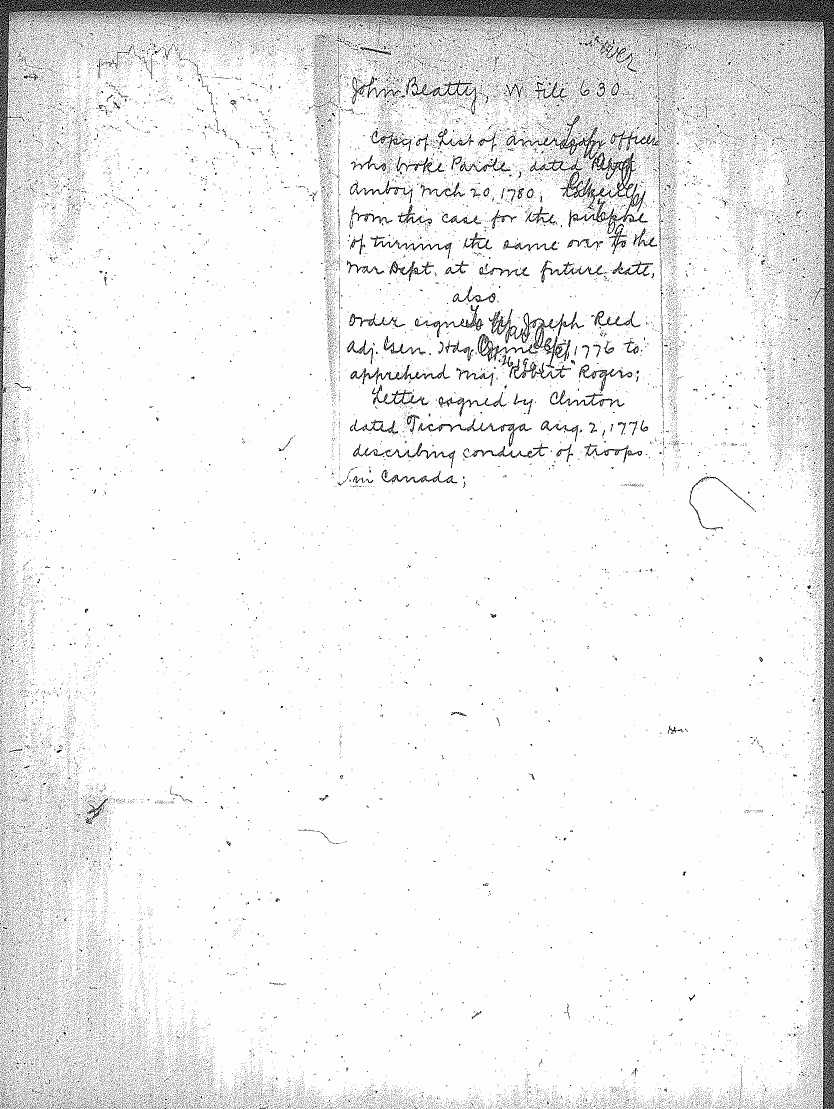 over
John Beatty, W File 630
Copy of List of American officers
who broke Parole, dated
Amboy Mch 20, 1780,
from this case for the purpose
of turning the same over to the
War Dept. at some future date,
also
Order signed by Joseph Reed
Adj. Gen. Hdq. 1776 to
apprehend Maj. Robert Rogers;
Letter signed by Clinton
dated Ticonderoga Aug. 2, 1776
describing conduct of troops
in Canada;